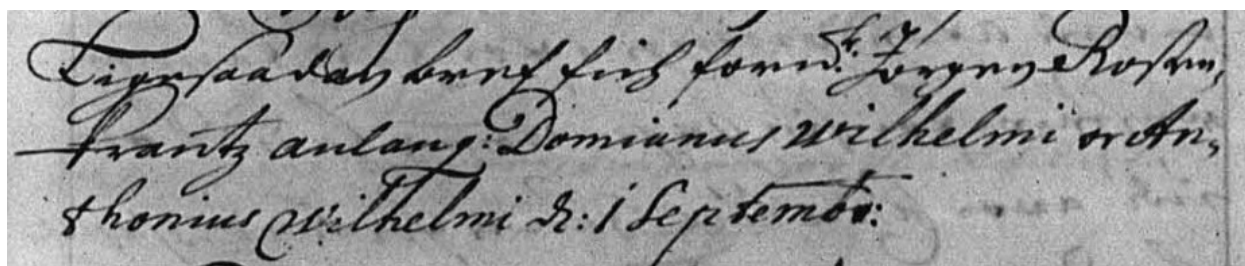 Ligesaadan bref fick fornd. h. Jørgen Rosen,
krantz anlang: Domianus Wilhelmi oc An,
thonius Wilhelmi d: 1 Septembr: